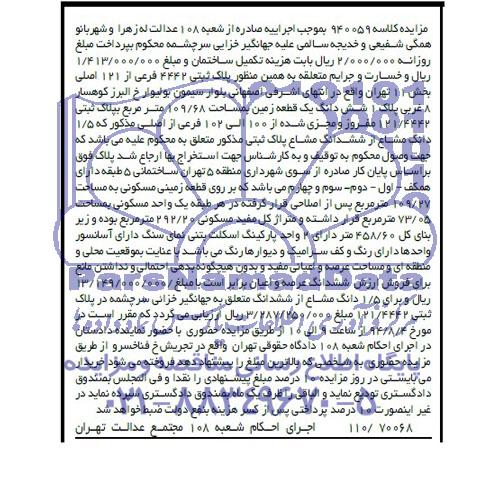 مزایده کلاسه ۹۴۰۰۵۹ بموجب اجراییه صادره از شعبه ۱۰۸ عدالت له زهرا و شهربانو
همگی شفیعی و خدیجه سالمی علیه جهانگیر خزایی سرچشمه محکوم بپرداخت مبلغ
روزانه ۲/۰۰۰/۰۰۰ ریال بابت هزینه تکمیل ساختمان و مبلغ ۱/۴۱۳/۰۰۰/۰۰۰
ریال و خسارت و جرایم متعلقه به همین منظور پلاک ثبتی ۴۴۴۲ فرعی از ۱۲۱ اصلی
بخش ۱۱ تهران واقع در انتهای اشرفی اصفهانی بلوار سیمون بولیوار خ البرز کوهسار
۸ غربی پلاک ۱ شش دانگ یک قطعه زمین بمساحت ۱۰۹/۶۸ متر مربع بپلاک ثبتی
۱۲۱/۴۴۴۲ مفروز و مجزی شده از ۱۰۰ الی ۱۰۲ فرعی از اصلی مذکور که ۱/۵
دانگ مشاع از ششدانگ مشاع پلاک ثبتی مذکور متعلق به محکوم علیه می باشد که
جهت وصول محکوم به توقیف و به کارشناس جهت استخراج بها ارجاع شد پلاک فوق
براساس پایان کار صادره از سوی شهرداری منطقه ۵ تهران ساختمانی ۵ طبقه دارای
همکف - اول - دوم- سوم و چهارم می باشد که بر روی قطعه زمینی مسکونی به مساحت
۱۰۹/۲۷ مترمربع پس از اصلاحی قرار گرفته در هر طبقه یک واحد مسکونی بمساحت
۷۳/۰۵ مترمربع قرار داشته و متراژ کل مفید مسکونی ۲۹۲/۲۰ مترمربع بوده و زیر
بنای کل ۴۵۸/۶۰ متر دارای ۲ واحد پارکینگ اسکلت بتنی نمای سنگ دارای آسانسور
واحدها دارای رنگ و کف سرامیک و دیوارها رنگ می باشد با عنایت بموقعیت محلی و
منطقه ای و مساحت عرصه و اعیانی مفید و بدون هیچگونه بدهی احتمالی و نداشتن مانع
برای فروش ارزش ششدانگ عرصه و اعیان برابر است با مبلغ ۱۳/۱۴۹/۰۰۰/۰۰۰
ریال و برای ۱/۵ دانگ مشاع از ششدانگ متعلق به جهانگیر خزائی سرچشمه در پلاک
ثبتی ۱۲۱/۴۴۴۲ مبلغ ۳/۲۸۷/۲۵۰/۰۰۰ ریال ارزیابی می گردد که مقرر است در
مورخ ۹۴/۸/۴ از ساعت ۹ الی ۱۰ از طریق مزایده حضوری با حضور نماینده دادستان
در اجرای احکام شعبه ۱۰۸ دادگاه حقوقی تهران واقع در تجریش خ فناخسرو از طریق
مزایده حضوری به شخصی که بالاترین مبلغ را پیشنهاد دهد فروخته می شود خریدار
می بایستی در روز مزایده ۱۰ درصد مبلغ پیشنهادی را نقدا و فی المجلس بصندوق
دادگستری تودیع نماید و الباقی را ظرف یک ماه بصندوق دادگستری سپرده نماید در
غیر اینصورت ۱۰ درصد پرداختی پس از کسر هزینه بنفع دولت ضبط خواهد شد
۱۱۰/۷۰۰۶۸ اجرای احکام شعبه ۱۰۸ مجتمع عدالت تهران
۰۲۱-۸۸۳۴۹۶۷۰-۵